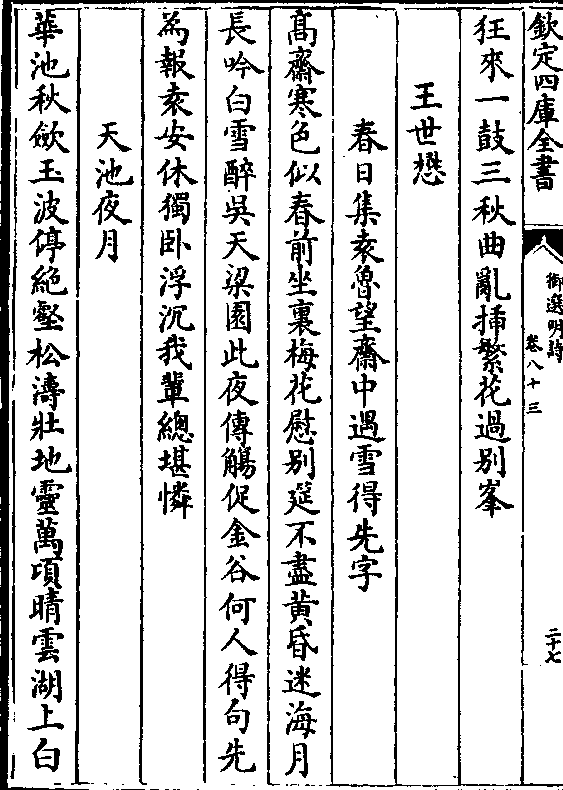 欽定四庫全書
御選明詩
卷八十三
二十七
狂來一鼓三秋曲亂揷繁花過別峯
王世懋
春日集袁魯望齋中遇雪得先字
髙齋寒色似春前坐裏梅花慰别筵不盡黄昏迷海月
長吟白雪醉吳天梁園此夜傳觴促金谷何人得句先
為報袁安休獨卧浮沉我輩總堪憐
天池夜月
華池秋斂玉波停絶壑松濤壯地靈萬頃晴雲湖上白